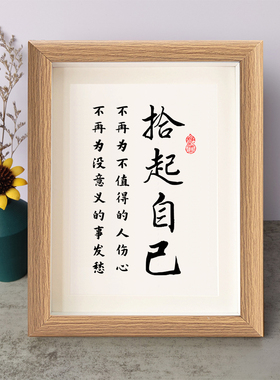 拾起自己
不再为不值得的人伤心
不再为没意义的事发愁